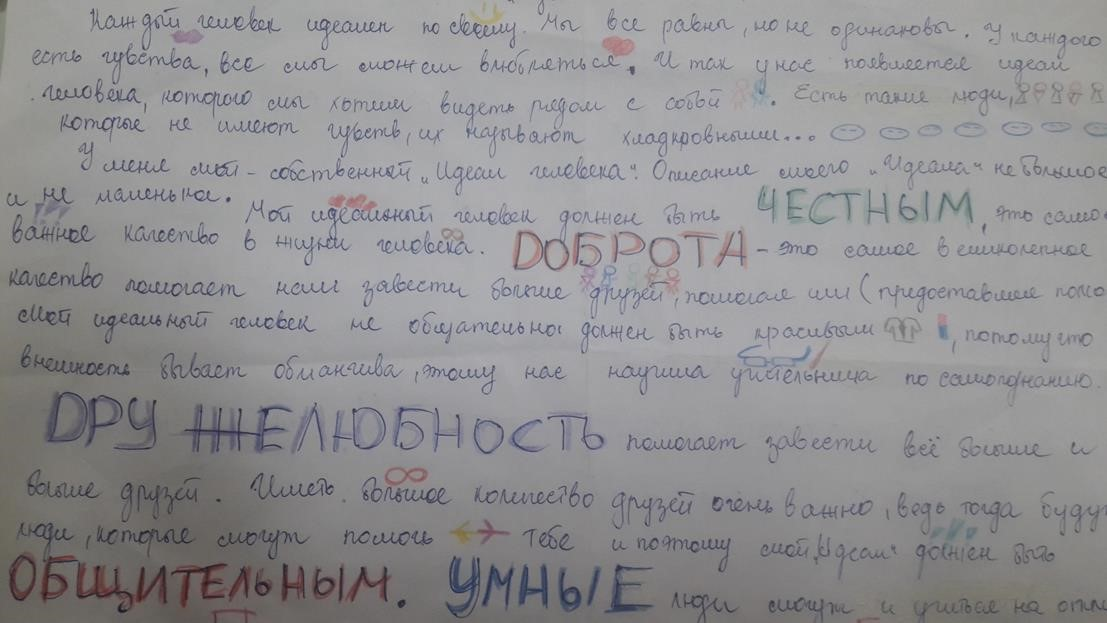 Каждый человек идеален по своему. Мы все равны, но не одинаковы. У каждого
есть чувства, все мы можем влюбляться. И так у нас появляется идеал
человека, которого мы хотим видеть рядом с собой. Есть такие люди,
которые не имеют чувств, их называют хладкровными...
У меня мой - собственный "Идеал человека". Описание моего "Идеала" не большое
и не маленькое.
Мой идеальный человек должен быть ЧЕСТНЫМ, это само
важное качество в жизни человека. ДОБРОТА - это самое великолепное
качество помогает нам завести больше друзей, помогая им (предоставляя помо
Мой идеальный человек не общательно должен быть красивым, потому что
внешность бывает обманчива, этому нас научила учительница по самопознанию.
ДРУЖЕЛЮБНОСТЬ помогает завести всё больше и
больше друзей. Иметь большое количество друзей очень важно, ведь тогда будут
люди, которые смогут помочь тебе и поэтому мой "Идеал" должен быть
ОБЩИТЕЛЬНЫМ. УМНЫЕ люди смогут и учиться на